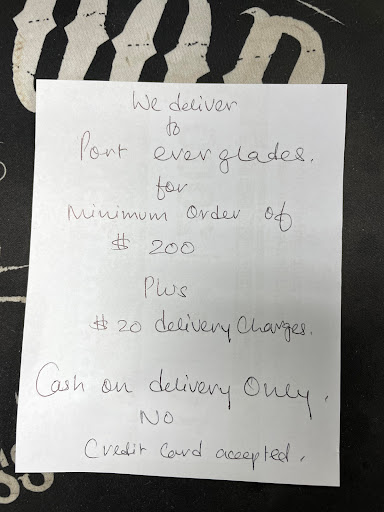 We deliver
to
Port everglades.
for
Minimum Order of
$ 200
Plus
$ 20 delivery Charges.
Cash on delivery Only.
NO
Credit Card accepted.